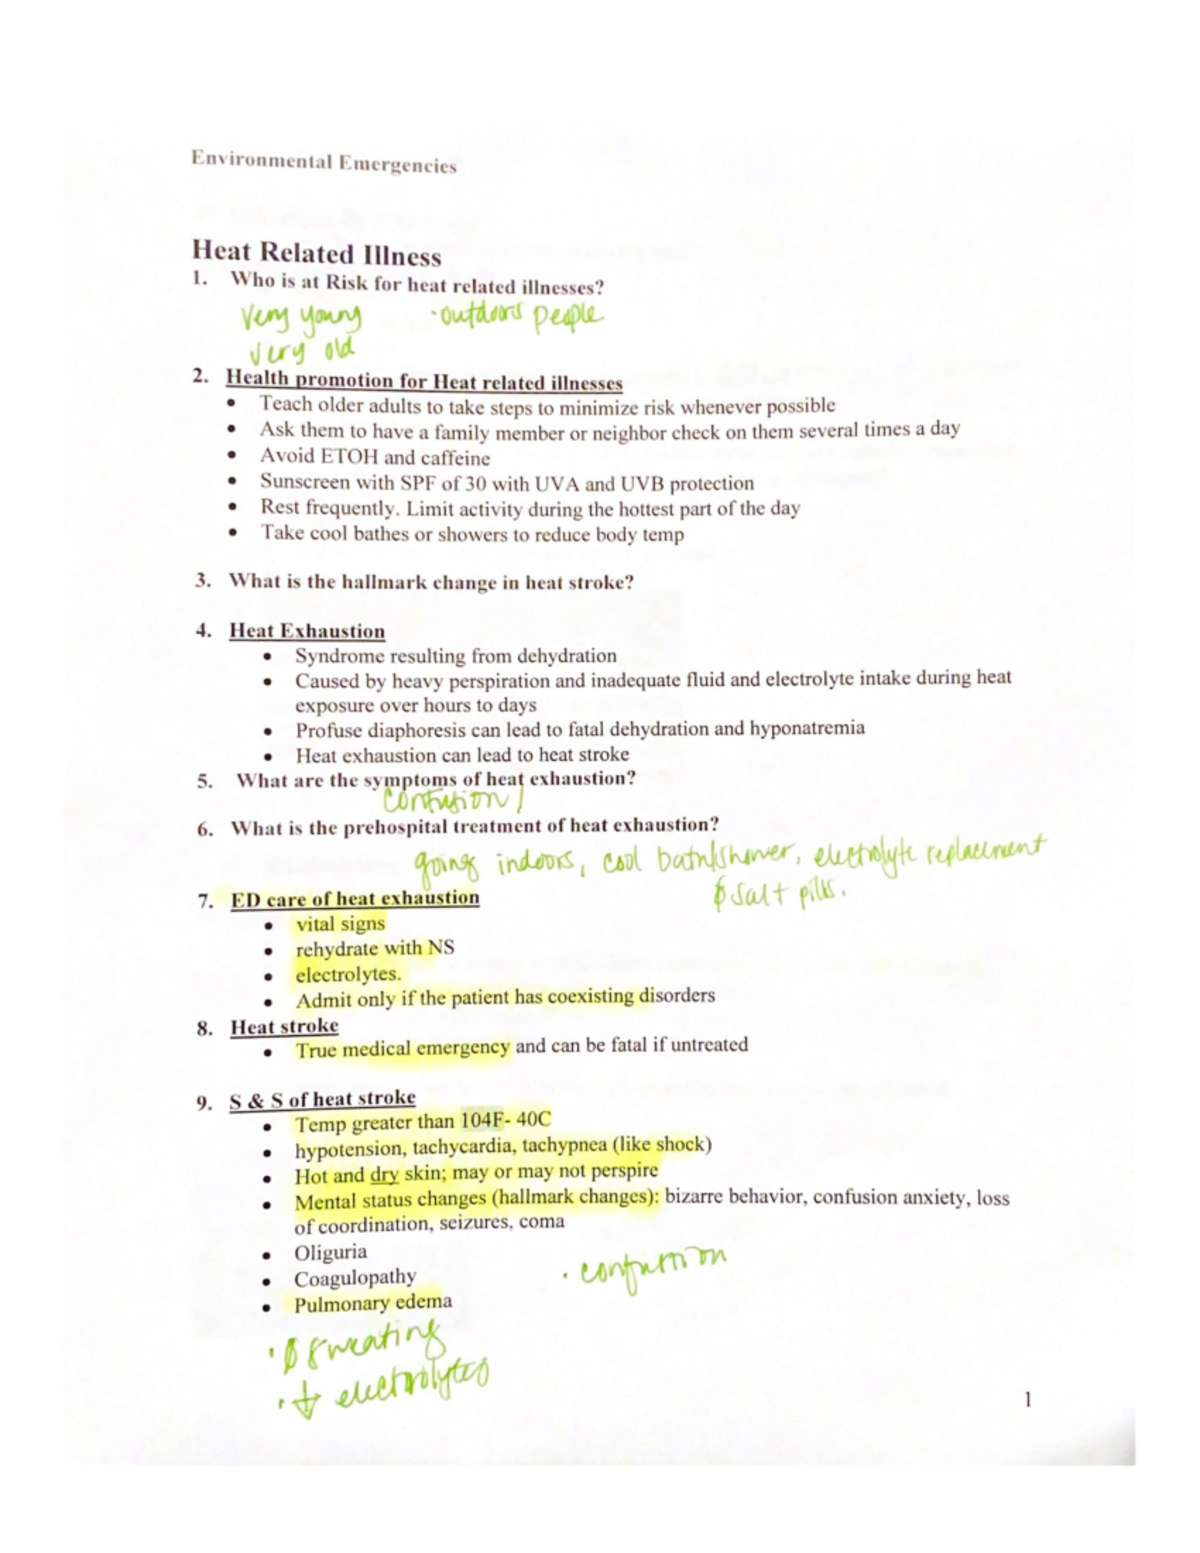 Environmental Emergencies
Heat Related Illness
1. Who is at Risk for heat related illnesses?
very young · outdoors people
very old
2. Health promotion for Heat related illnesses
• Teach older adults to take steps to minimize risk whenever possible
• Ask them to have a family member or neighbor check on them several times a day
• Avoid ETOH and caffeine
• Sunscreen with SPF of 30 with UVA and UVB protection
• Rest frequently. Limit activity during the hottest part of the day
• Take cool bathes or showers to reduce body temp
3. What is the hallmark change in heat stroke?
4. Heat Exhaustion
• Syndrome resulting from dehydration
• Caused by heavy perspiration and inadequate fluid and electrolyte intake during heat
exposure over hours to days
• Profuse diaphoresis can lead to fatal dehydration and hyponatremia
• Heat exhaustion can lead to heat stroke
5. What are the symptoms of heat exhaustion?
confusion /
6. What is the prehospital treatment of heat exhaustion?
going indoors, cool bath/shower, electrolyte replacement
Ø salt pills.
7. ED care of heat exhaustion
• vital signs
• rehydrate with NS
• electrolytes.
• Admit only if the patient has coexisting disorders
8. Heat stroke
• True medical emergency and can be fatal if untreated
9. S & S of heat stroke
• Temp greater than 104F- 40C
• hypotension, tachycardia, tachypnea (like shock)
• Hot and dry skin; may or may not perspire
• Mental status changes (hallmark changes): bizarre behavior, confusion anxiety, loss
of coordination, seizures, coma
• Oliguria
• Coagulopathy
• Pulmonary edema
· confusion
· Ø sweating
· ↓ electrolytes
1